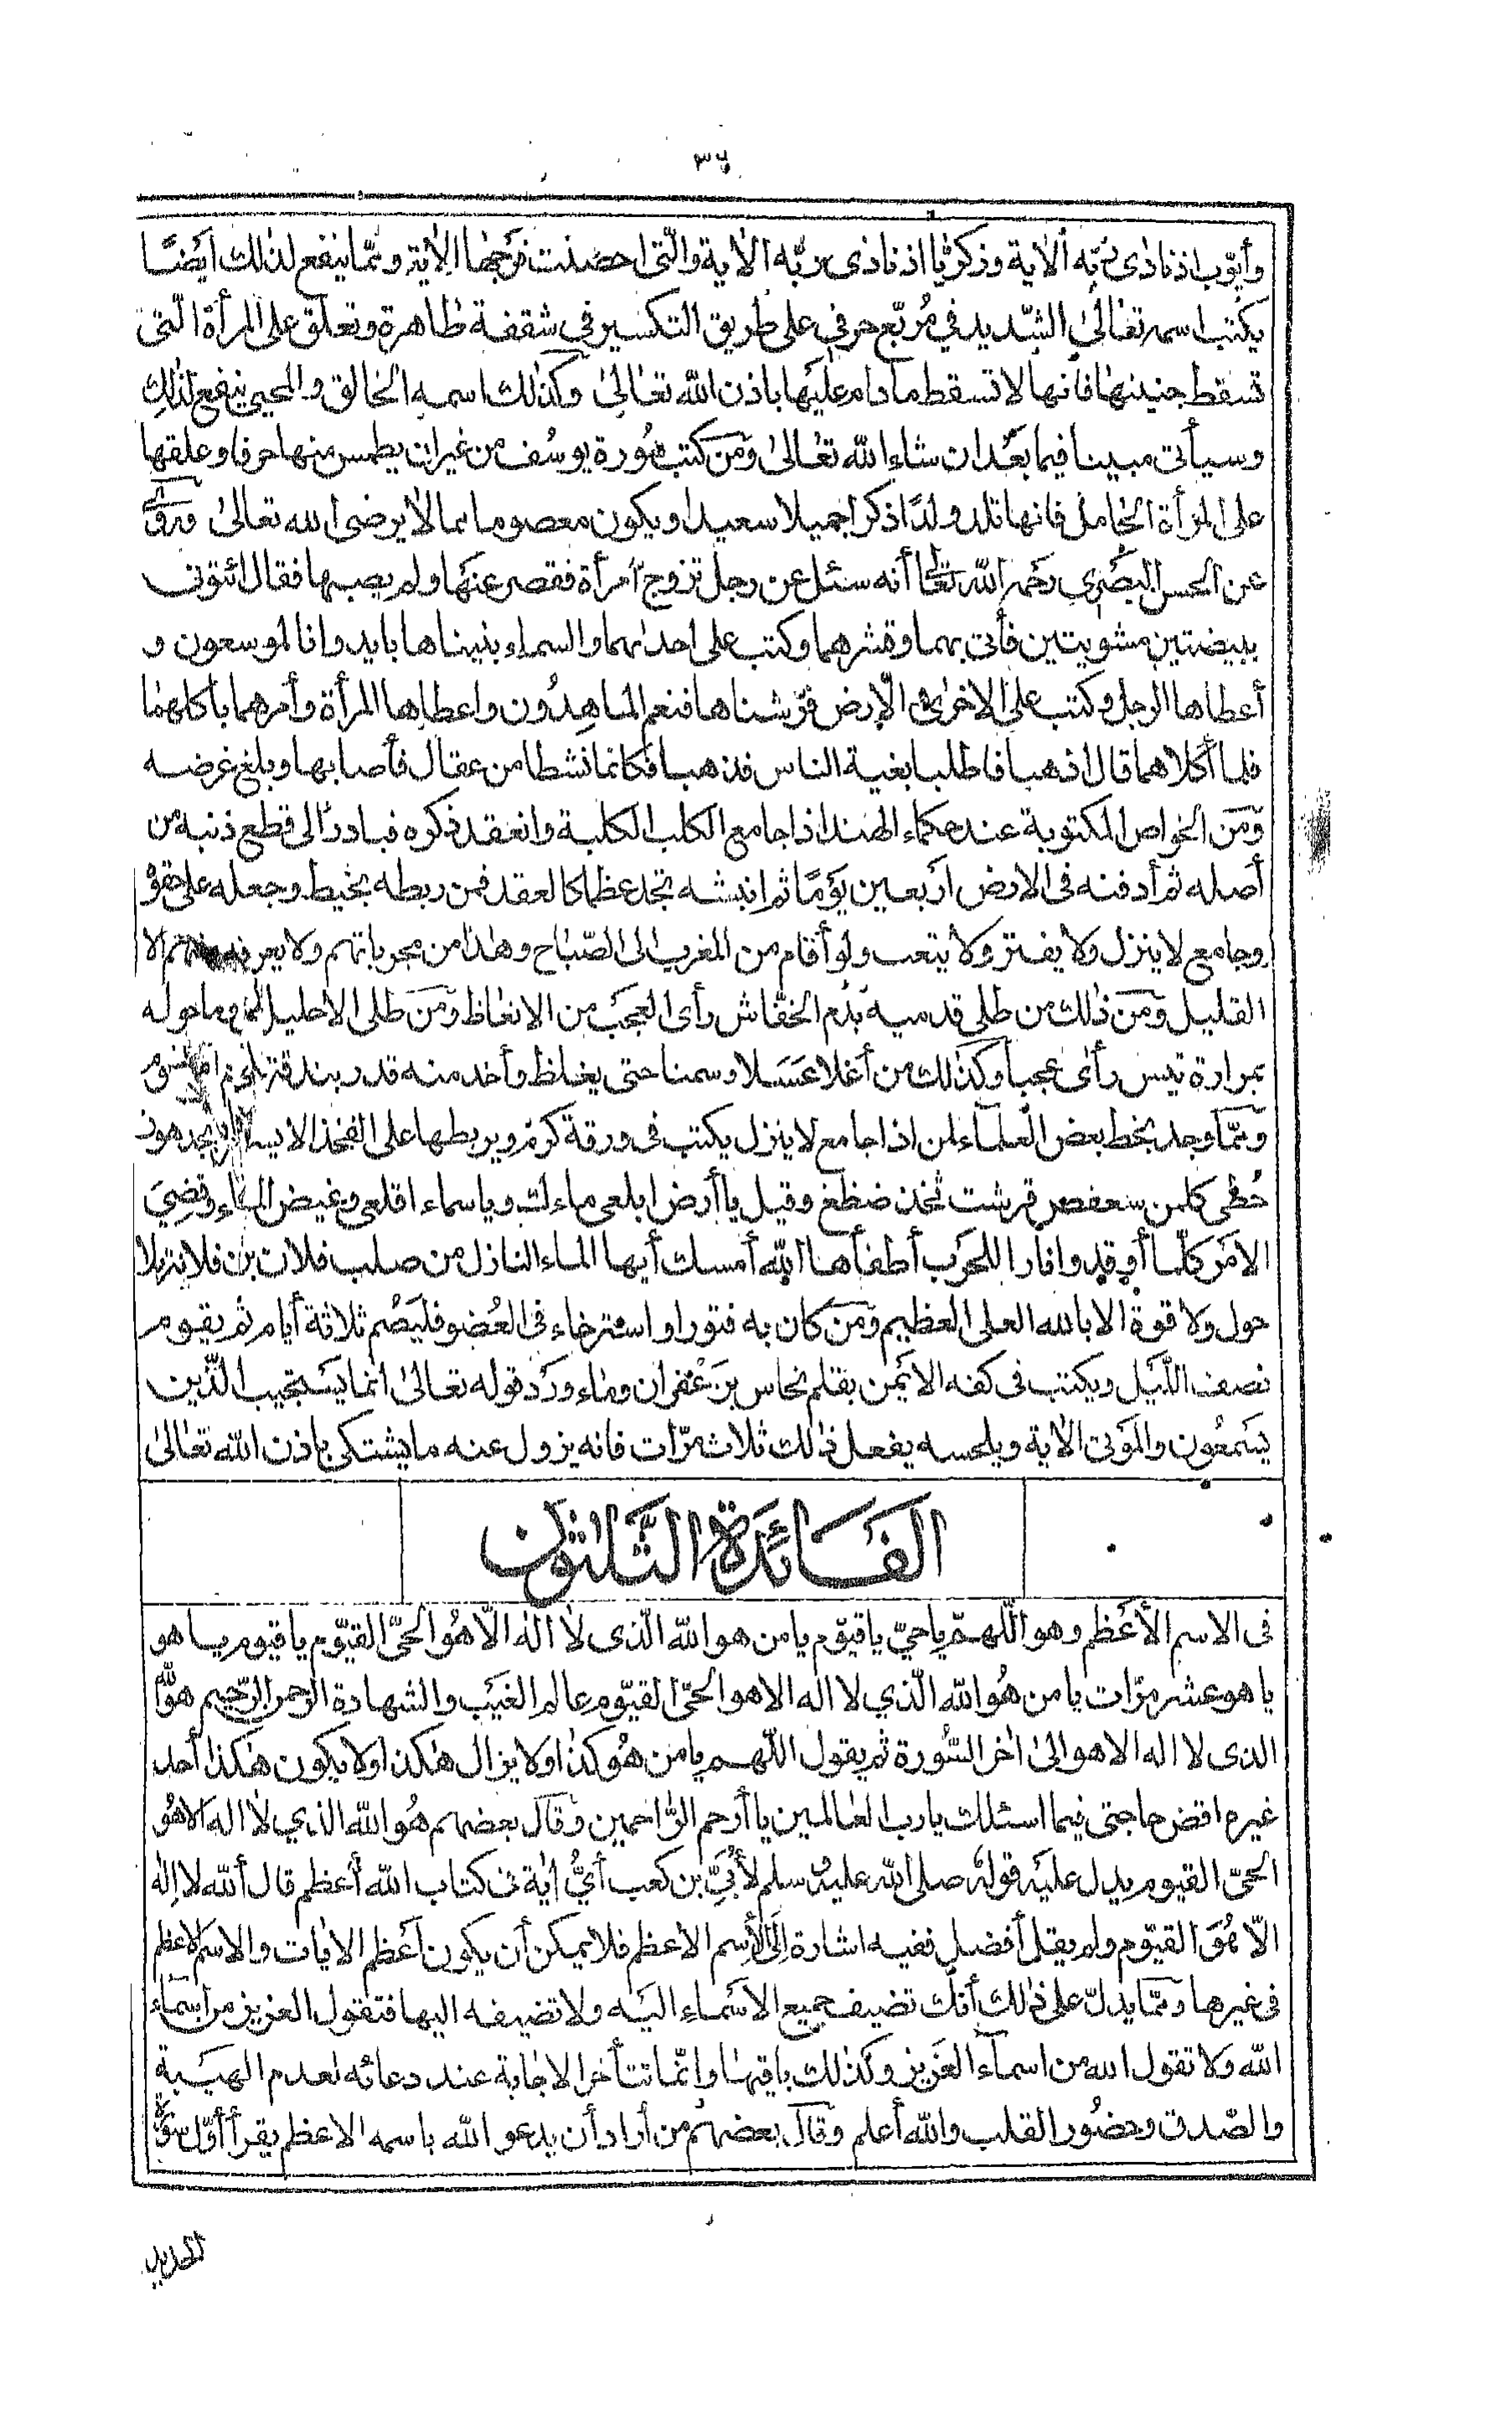 ٣٤
وأيّوب اذ نادٰى ربّه الاٰية وذكريّا اذ نادٰى ربّه الاٰية والّتى احصنت فرجها الاٰية وممّا ينفع لذٰلك ايضًا
يكتب اسمه تعالىٰ الشّديد في مُربّع حرفي على طريق التكسير في شقفة طاهرة وتعلّق على المرأة الّتى
تسقط جنينها فانها لا تسقط مادام عليها باذن الله تعالىٰ وكذلك اسمه الخالق والمحيى ينفع لذلك
وسيأتى مبينا فيما بعد ان شاء الله تعالىٰ ومن كتب سُورة يوسُف من غير ان يطمس منها حرفا وعلقها
على المرأة الحامل فانها تلد ولدًا ذكرا جميلا سعيدا ويكون معصوما مما لا يرضى الله تعالىٰ وروى
عن الحسن البصرى رحمه الله تعالى أنه سئل عن رجل تزوج امرأة فقصر عنها ولم يصبها فقال ائتونى
ببيضتين مشويتين فأتى بهما وقشرهما وكتب على احدٰهما والسماء بنيناها بايد وانا لموسعون و
أعطاها الرجل وكتب على الاخرٰى والارض فرشناها فنعم الماهِدُون واعطاها المرأة وأمرهما باكلهما
فلما أكلاهما قال اذهبا فاطلبا بغية الناس فذهبا فكانما نشطا من عقال فأصابها وبلغ غرضه
ومن الخواص المكتوبة عند حكماء الهند اذا جامع الكلب الكلبة وانعقد ذكره فبادر الى قطع ذنبه من
أصله ثم أدفنه فى الارض اربعين يومًا ثم انبشه تجد عظما كالعقد فمن ربطه بخيط وجعله على حقوه
وجامع لا ينزل ولا يفتر ولا يتعب ولو أقام من المغرب الى الصّباح وهذا من مجرباتهم ولا يعرفه منهم الا
القليل ومن ذٰلك من طلى قدميه بدم الخفّاش رأى العجب من الانعاظ ومن طلى الاحليل وما حوله
بمرارة تيس رأىٰ عجبا وكذلك من أغلا عسلا وسمنا حتى يغلظ وأخذ منه قدر بندقة
وممّا وجد بخط بعض العلماء لمن اذا جامع لا ينزل يكتب فى ورقة كرم ويربطها على الفخذ الايسر أبجد هوز
حُطى كلمن سعفص قرشت ثخذ ضظغ وقيل يا أرض ابلعى ماءك ويا سماء اقلعى وغيض الماء وقضِيَ
الامر كلّما أوقدوا نارا للحرب أطفأها الله أمسك أيها الماء النازل من صلب فلان بن فلانة بلا
حول ولا قوة الا بالله العلى العظيم ومن كان به فتور او استرخاء فى العُضو فليصُم ثلاثة أيام ثم يقوم
نصف اللّيل ويكتب فى كفه الايمن بقلم نحاس بزعفران وماء ورد قوله تعالىٰ انما يستجيب الّذين
يسمعُون والموتى الاٰية ويلحسه يفعل ذٰلك ثلاث مرّات فانه يزول عنه ما يشتكى باذن الله تعالىٰ
الفَائدة الثّلٰثون
فى الاسم الأعظم وهو اللّهمّ يا حيّ يا قيّوم يا من هو الله الّذى لا اله الّا هُو الحىّ القيّوم يا قيوم يا هو
يا هو عشر مرّات يا من هُو الله الّذي لا اله الا هو الحىّ القيّوم عالم الغيب والشهادة الرحمن الرّحيم هو الله
الذى لا اله الا هو الىٰ اٰخر السُّورة ثم يقول اللّهم يا من هُو كذا ولا يزال هٰكذا ولا يكون هٰكذا أحد
غيره اقض حاجتى فيما اسئلك يا رب العالمين يا أرحم الرّاحمين وقال بعضهم هُو الله الذي لا اله الا هُو
الحىّ القيوم يدل عليه قوله صلى الله عليه وسلم لأُبَيّ بن كعب أيُّ اٰية فى كتاب الله أعظم قال ألله لا إله
الّا هُوَ القيّوم ولم يقل أفضل ففيه اشارة إلى الأسم الأعظم فلا يمكن أن يكون اعظم الاٰيات والاسم الاعظم
فى غيرها وممّا يدلّ على ذٰلك أنّك تضيف جميع الاسماء اليه ولا تضيفه اليها فتقول العزيز من اسماء
الله ولا تقول الله من اسماء العزيز وكذلك باقيها وانّما تتأخر الاجابة عند دعائه لعدم الهيبة
والصّدق وحضُور القلب والله أعلم وقال بعضهم من أراد أن يدعو الله باسمه الاعظم يقرأ أوّل سورة
الحديد